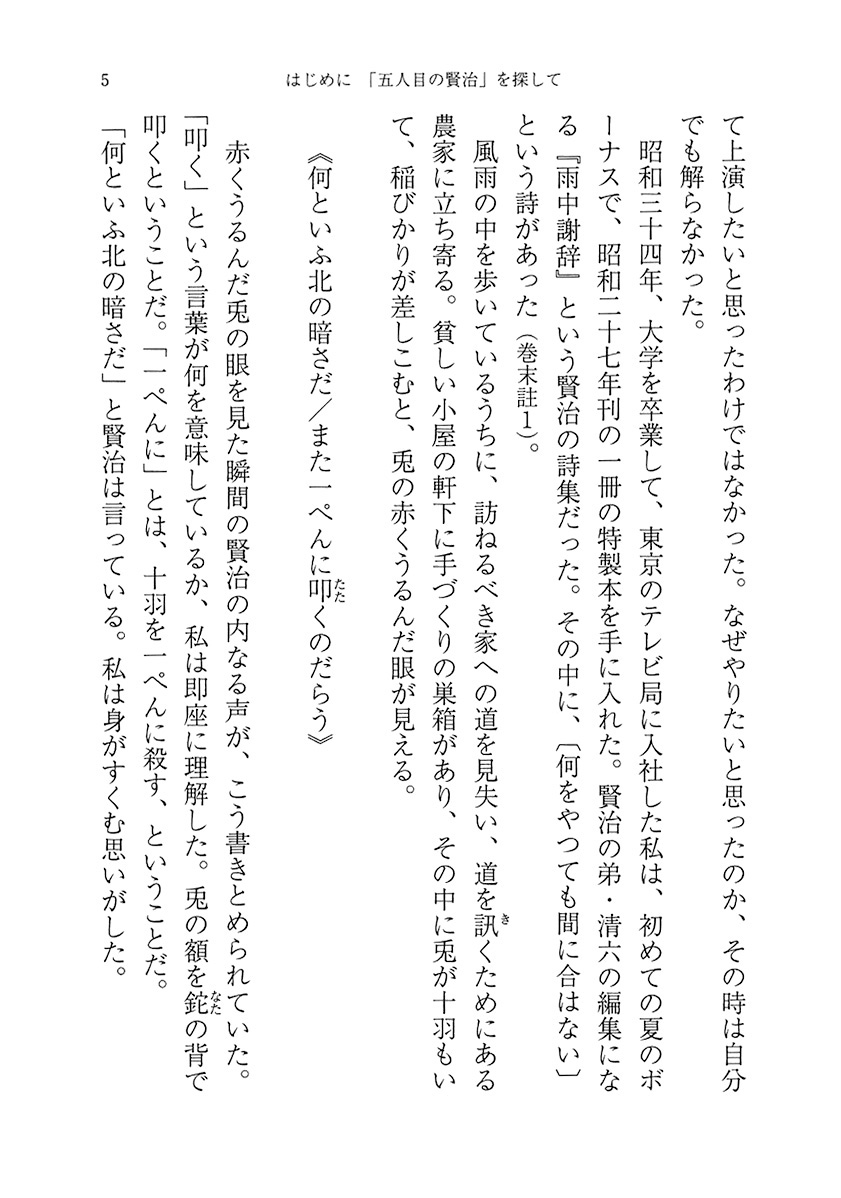 5
はじめに 「五人目の賢治」を探して
て上演したいと思ったわけではなかった。なぜやりたいと思ったのか、その時は自分
でも解らなかった。
昭和三十四年、大学を卒業して、東京のテレビ局に入社した私は、初めての夏のボ
ーナスで、昭和二十七年刊の一冊の特製本を手に入れた。賢治の弟・清六の編集にな
る『雨中謝辞』という賢治の詩集だった。その中に、〔何をやつても間に合はない〕
という詩があった（巻末註1）。
風雨の中を歩いているうちに、訪ねるべき家への道を見失い、道を訊くためにある
農家に立ち寄る。貧しい小屋の軒下に手づくりの巣箱があり、その中に兎が十羽もい
て、稲びかりが差しこむと、兎の赤くうるんだ眼が見える。
《何といふ北の暗さだ／また一ぺんに叩くのだらう》
赤くうるんだ兎の眼を見た瞬間の賢治の内なる声が、こう書きとめられていた。
「叩く」という言葉が何を意味しているか、私は即座に理解した。兎の額を鉈の背で
叩くということだ。「一ぺんに」とは、十羽を一ぺんに殺す、ということだ。
「何といふ北の暗さだ」と賢治は言っている。私は身がすくむ思いがした。